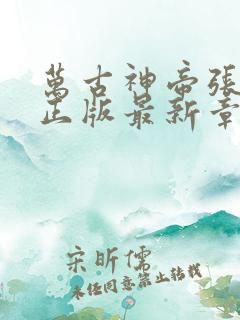 萬古神帝張
正版最新章
宋昕儒
未经同意禁止转载